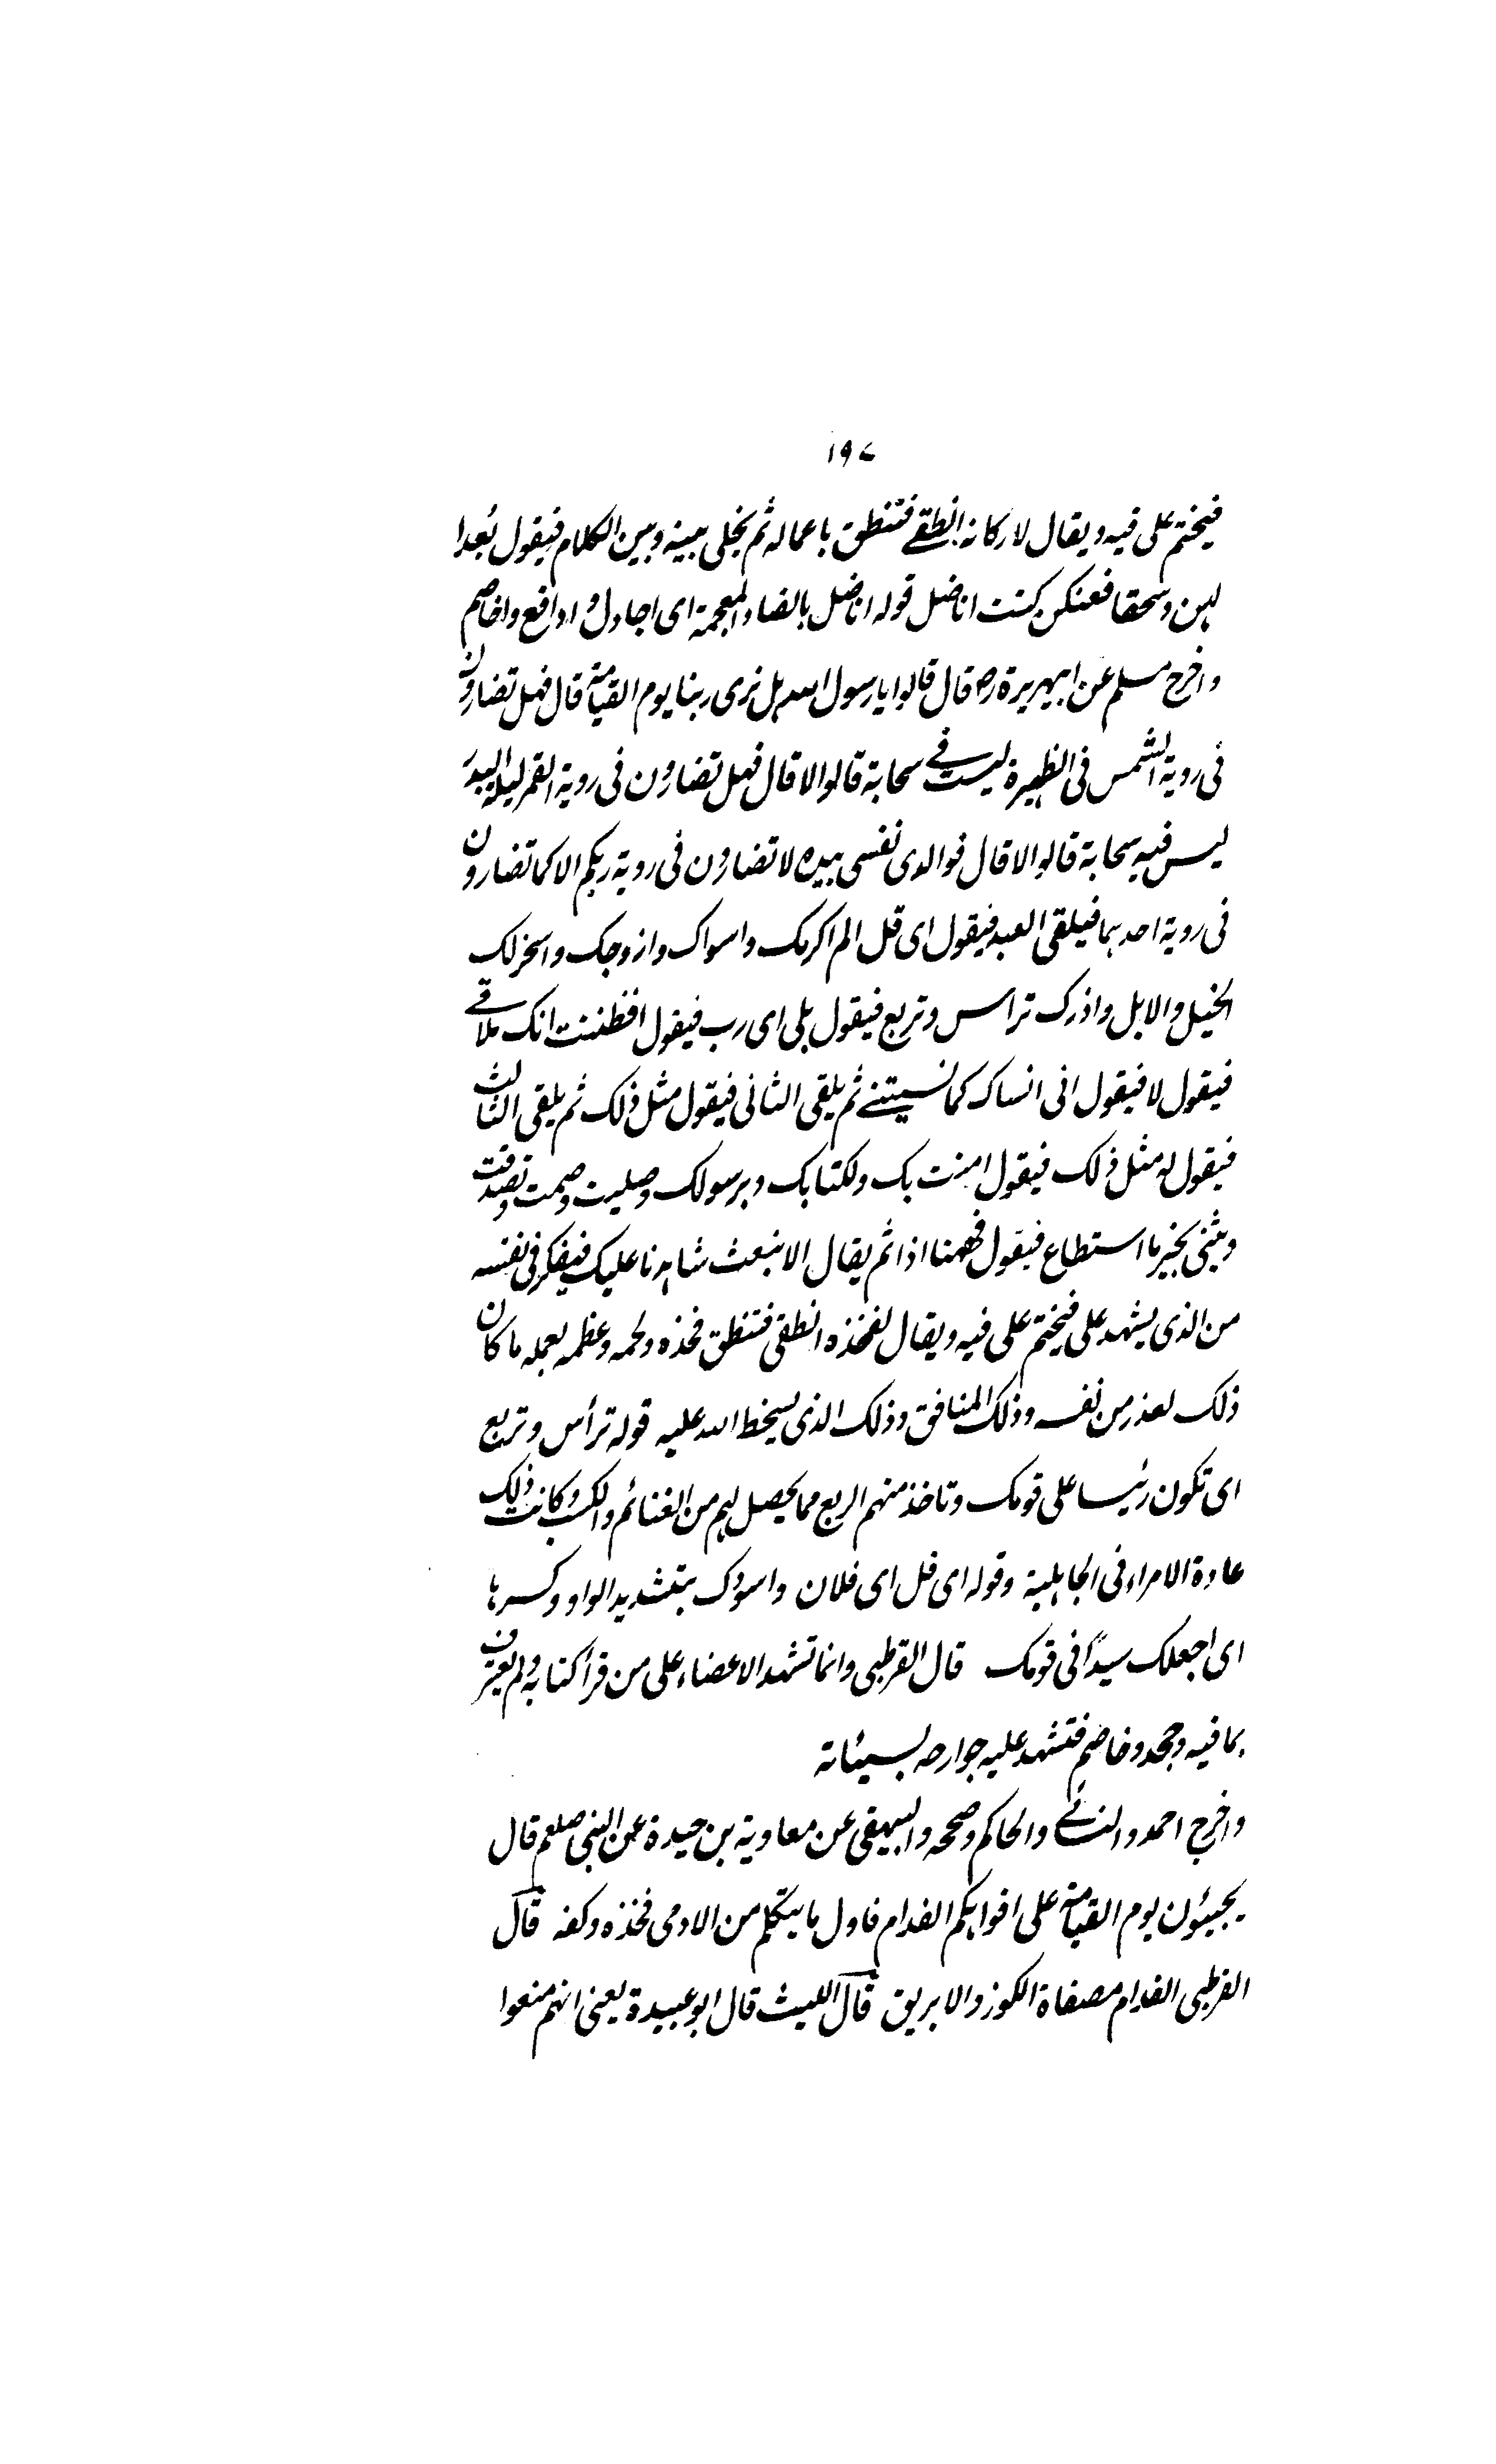 ۱۹۷
فيختم على فيه ويقال لاركانه انطقے فتنطق باعماله ثم يخلى بينه وبين الكلام فيقول بُعدا
لهن وسحقا فعنكن كنت اناضل قوله اناضل بالضاد المعجمة اى اجادل وادافع واخاصم
واخرج مسلم عن ابيهريرة رض قال قالوا يا رسول الله هل نرى ربنا يوم القيامة قال فهل تضارون
فى روية الشمس فى الظهيرة ليست فے سحابة قالوا لا قال فهل تضارون فى روية القمر ليلة البدر
ليس فيه سحابة قالوا لا قال فوالذى نفسى بيده لا تضارون فى روية ربكم الا كما تضارون
فى روية احدهما فيلقى العبد فيقول اى فل الم اكرمك واسواك وازوجك واسخرلك
الخيل والابل واذرك ترأس وتربع فيقول بلى اى رب فيقول افظننت انك ملاقے
فيقول لا فيقول انى انساك كما نسيتنے ثم يلقى الثانى فيقول مثل ذلك ثم يلقى الثالث
فيقول له مثل ذلك فيقول امنت بك ولكتابك وبرسولك وصليت وصمت وتصدقت
ويثنى بخير ما استطاع فيقول فههنا اذا ثم يقال الا نبعث شاهدنا عليك فيفكر فى نفسه
من الذى يشهد على فيختم على فيه ويقال لفخذه انطقى فتنطق فخذه ولحمه وعظمه بعمله ما كان
ذلك لعذر من نفسه وذلك المنافق وذلك الذى يسخط الله عليه قوله ترأس وتربع
اى تكون رئيسا على قومك وتاخذ منهم الربع مما يحصل لهم من الغنائم والكسب وكانت ذلك
عادة الامراء فى الجاهلية وقوله اى فل اى فلان واسوّك بتشديد الواو وكسرها
اى اجعلك سيدًا فى قومك قال القرطبى وانما تشهد الاعضاء على من قرأ كتابه ولم يعترف
بما فيه وجحد وخاصم فتشهد عليه جوارحه بسيئاته
واخرج احمد والنسائے والحاكم وصححه والبيهقى عن معاوية بن حيدة عن النبى صلعم قال
يجيئون يوم القيامة على افواهكم الفدام فاول ما يتكلم من الادمى فخذه وكفه قال
القرطبى الفدام مصفاة الكوز والابريق قال الليث قال ابو عبيدة يعنى انهم منعوا